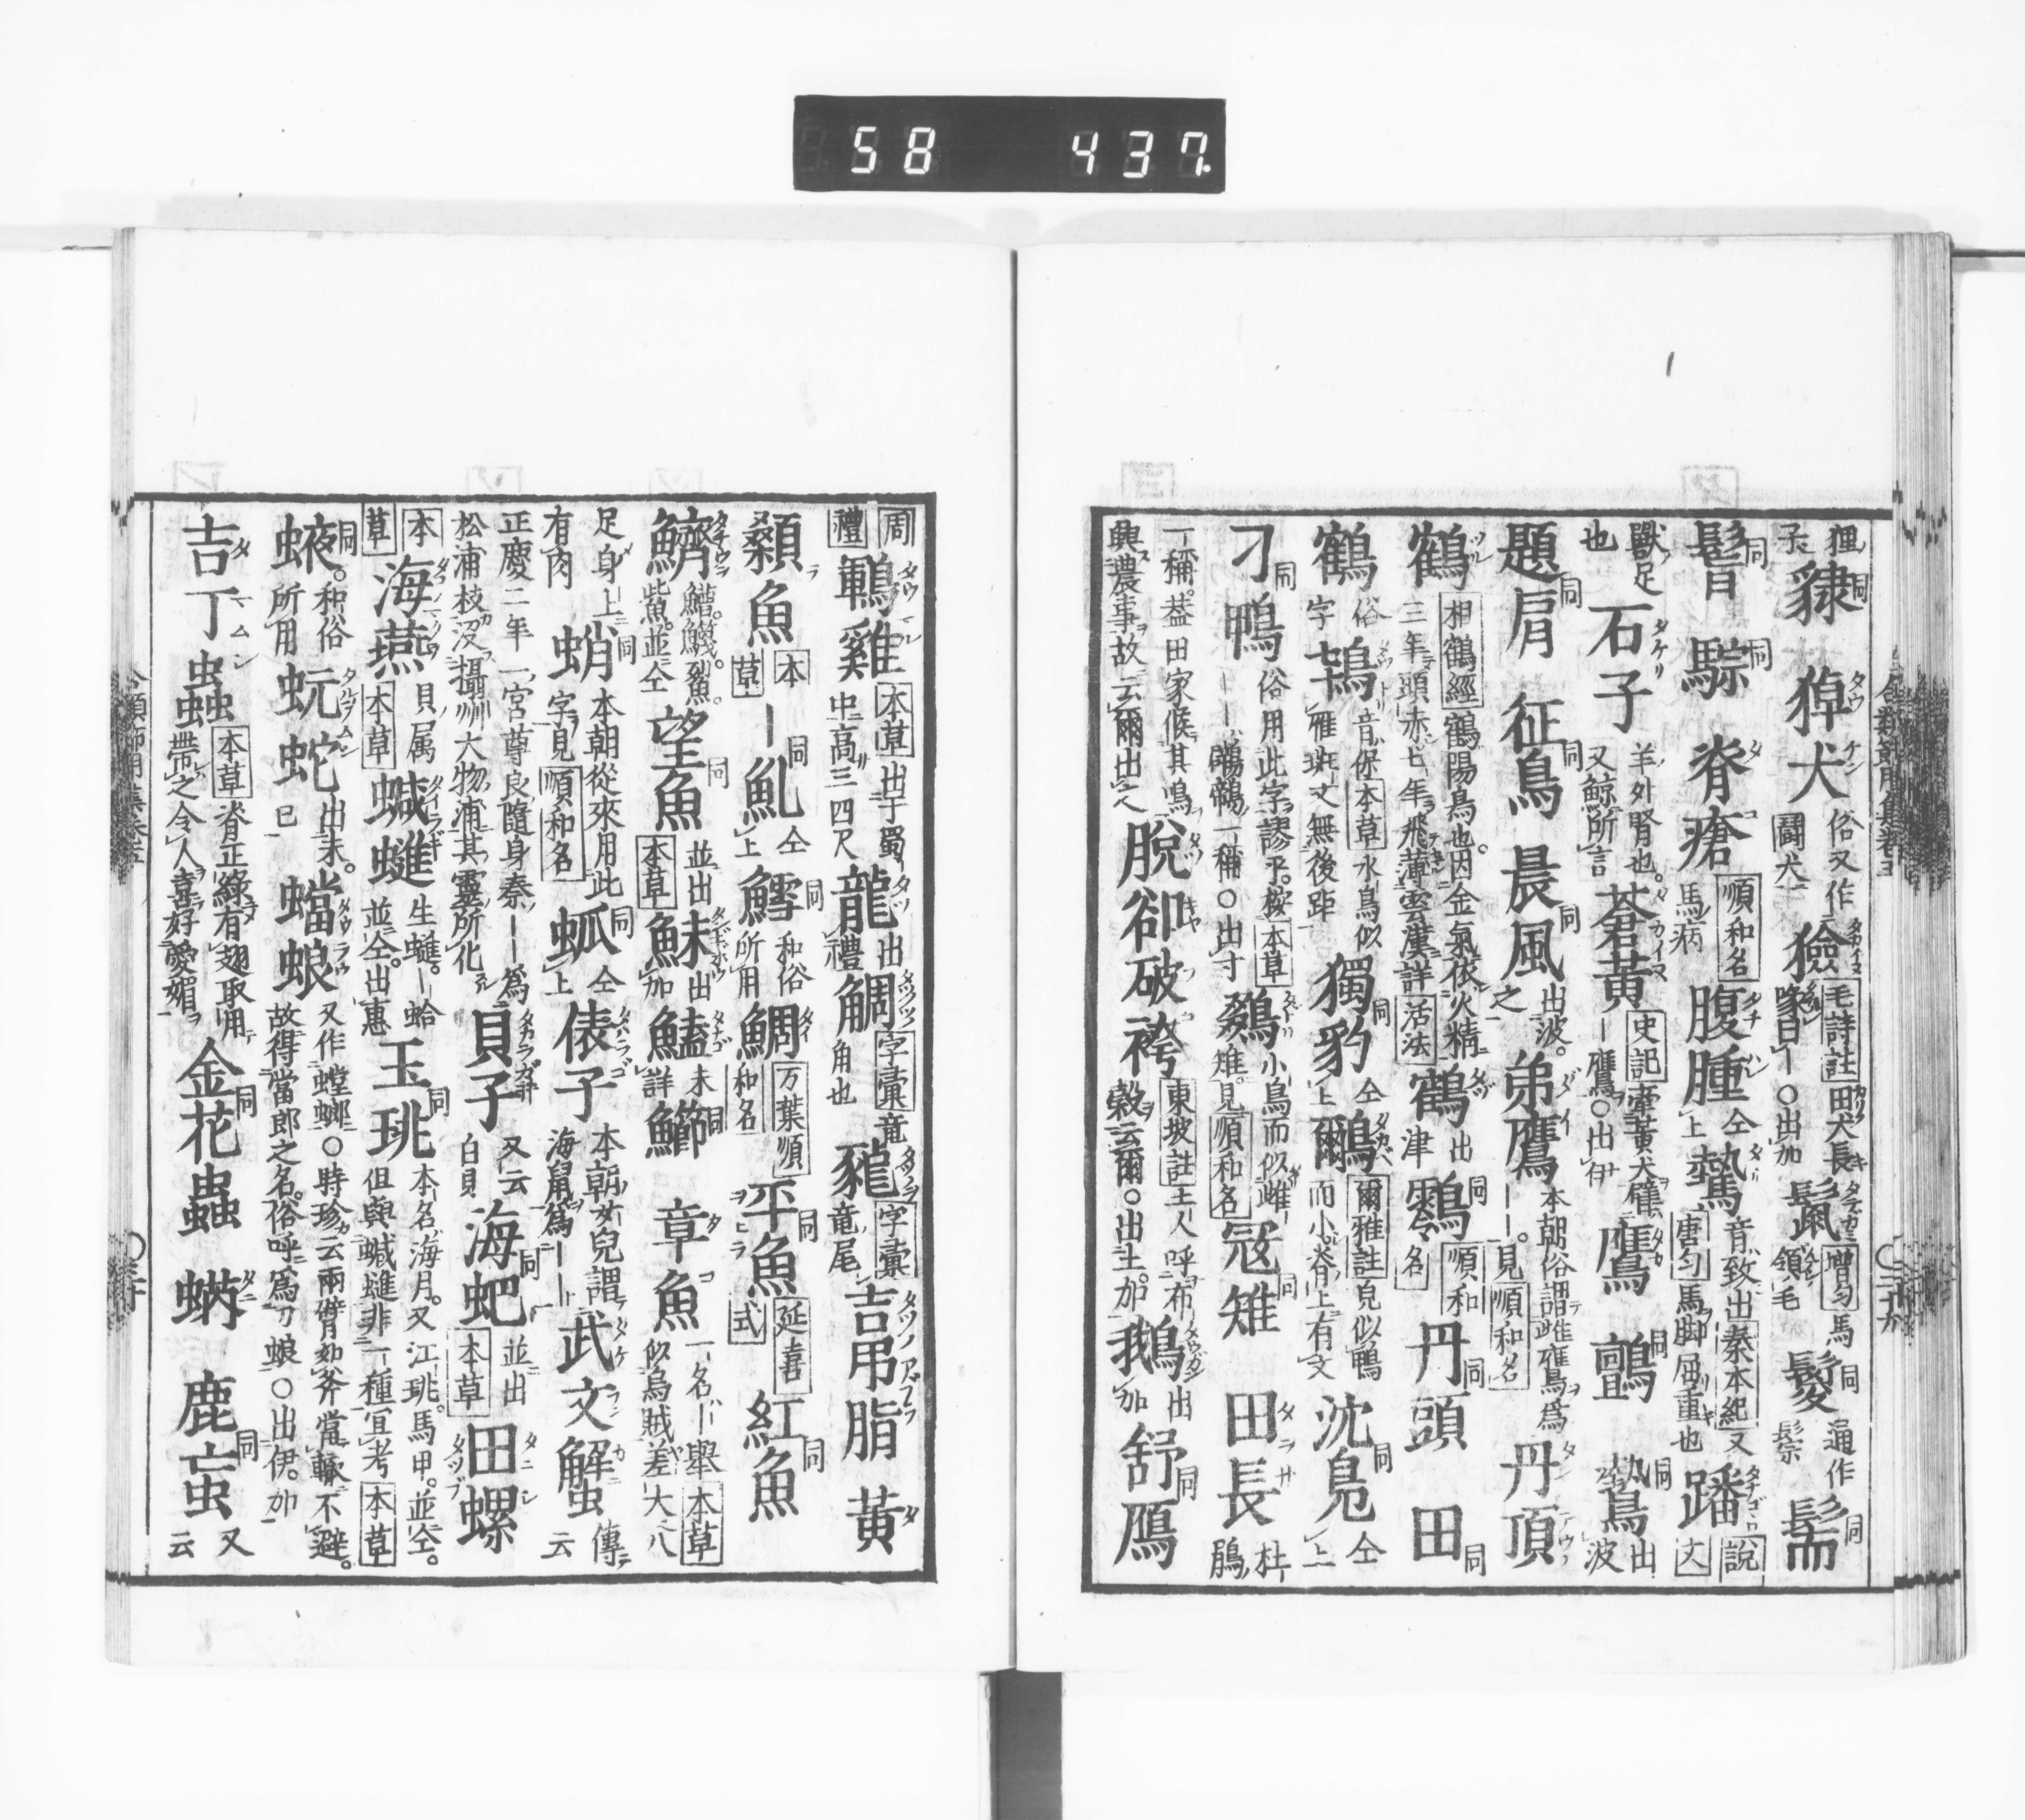 58 437
狸子 貄同 猙犬 俗又作鬪犬 獫 毛詩註田犬長喙曰｜○出加 鬣 増匀馬領毛 鬉同 通作鬃 髵同
髻同 騌同 脊瘡 順和名馬病 腹腫 仝上 騺 音致出秦本紀又唐匀馬脚屈重也 蹯 説文
獸足也 石子 羊外腎也又鯨所言 蒼黄 史記牽黄犬臂｜鷹○出伊 鷹 鸇同 鷙鳥同 出波
題肩同 征鳥同 晨風同 出波之 弟鷹 本朝俗謂雌鷹為｜｜見順和名 丹頂
鶴 相鶴經鶴陽鳥也因金氣依火精三年頭赤七年飛薄雲漢詳活法 鶴 出津 鸖同 順和名 丹頭同 田同
鶴 俗字 鴇 音保本草水鳥似雁斑文無後距 獨豹同 仝上 鸍 爾雅註鳧似鴨而小脊上有文 沈鳧同 仝上
刁鴨同 俗用此字謬乎按本草｜｜鸊鷉一稱○出寸 鷚 小鳥而似雌雉見順和名 冦雉同 田長 杜鵑
一稱蓋田家候其鳴興農事故云爾出久 脱卻破袴 東坡註土人呼布穀云爾○出土加 鵝 出加 舒鴈同
今類節用集卷五
周禮 鶤雞 本草出于蜀中高三四尺 龍 出禮 鯛 字彙竜角也 𧱓 字彙竜尾 吉吊脂 黄
顙魚 本草 ｜䰲同 仝上 鱈同 和俗所用 鯛 万葉順和名 平魚同 延喜式 紅魚同
鱭 鱛鱴鮤鮆並仝 望魚同 並出本草 鮇 出加 鰪 未詳 鰤同 章魚 一名｜舉本草似烏賊差大八
足身上有肉 蛸同 本朝從來用此字見順和名 䖯同 仝上 俵子 本朝女兒謂海鼠為｜｜ 武文蟹 傳云
正慶二年一宮尊良隨身秦｜｜為松浦枝没攝州大物浦其靈所化 貝子 又云白貝 海䶕同 並出本草 田螺
本草 海燕 貝属本草 蝛䗯 生䗯｜蛤並仝出惠 玉珧同 本名海月又江珧馬甲並仝但與蝛䗯非一種宜考本草
蛂同 和俗所用 蚖蛇 出末巳 蟷蜋 又作螳螂○時珍云兩臂如斧當轍不避故得當郎之名俗呼為刀蜋○出伊加
吉丁蟲 本草脊正綠有翅取用帶之令人喜好愛媚 金花蟲同 蟎 鹿䖟同 又云